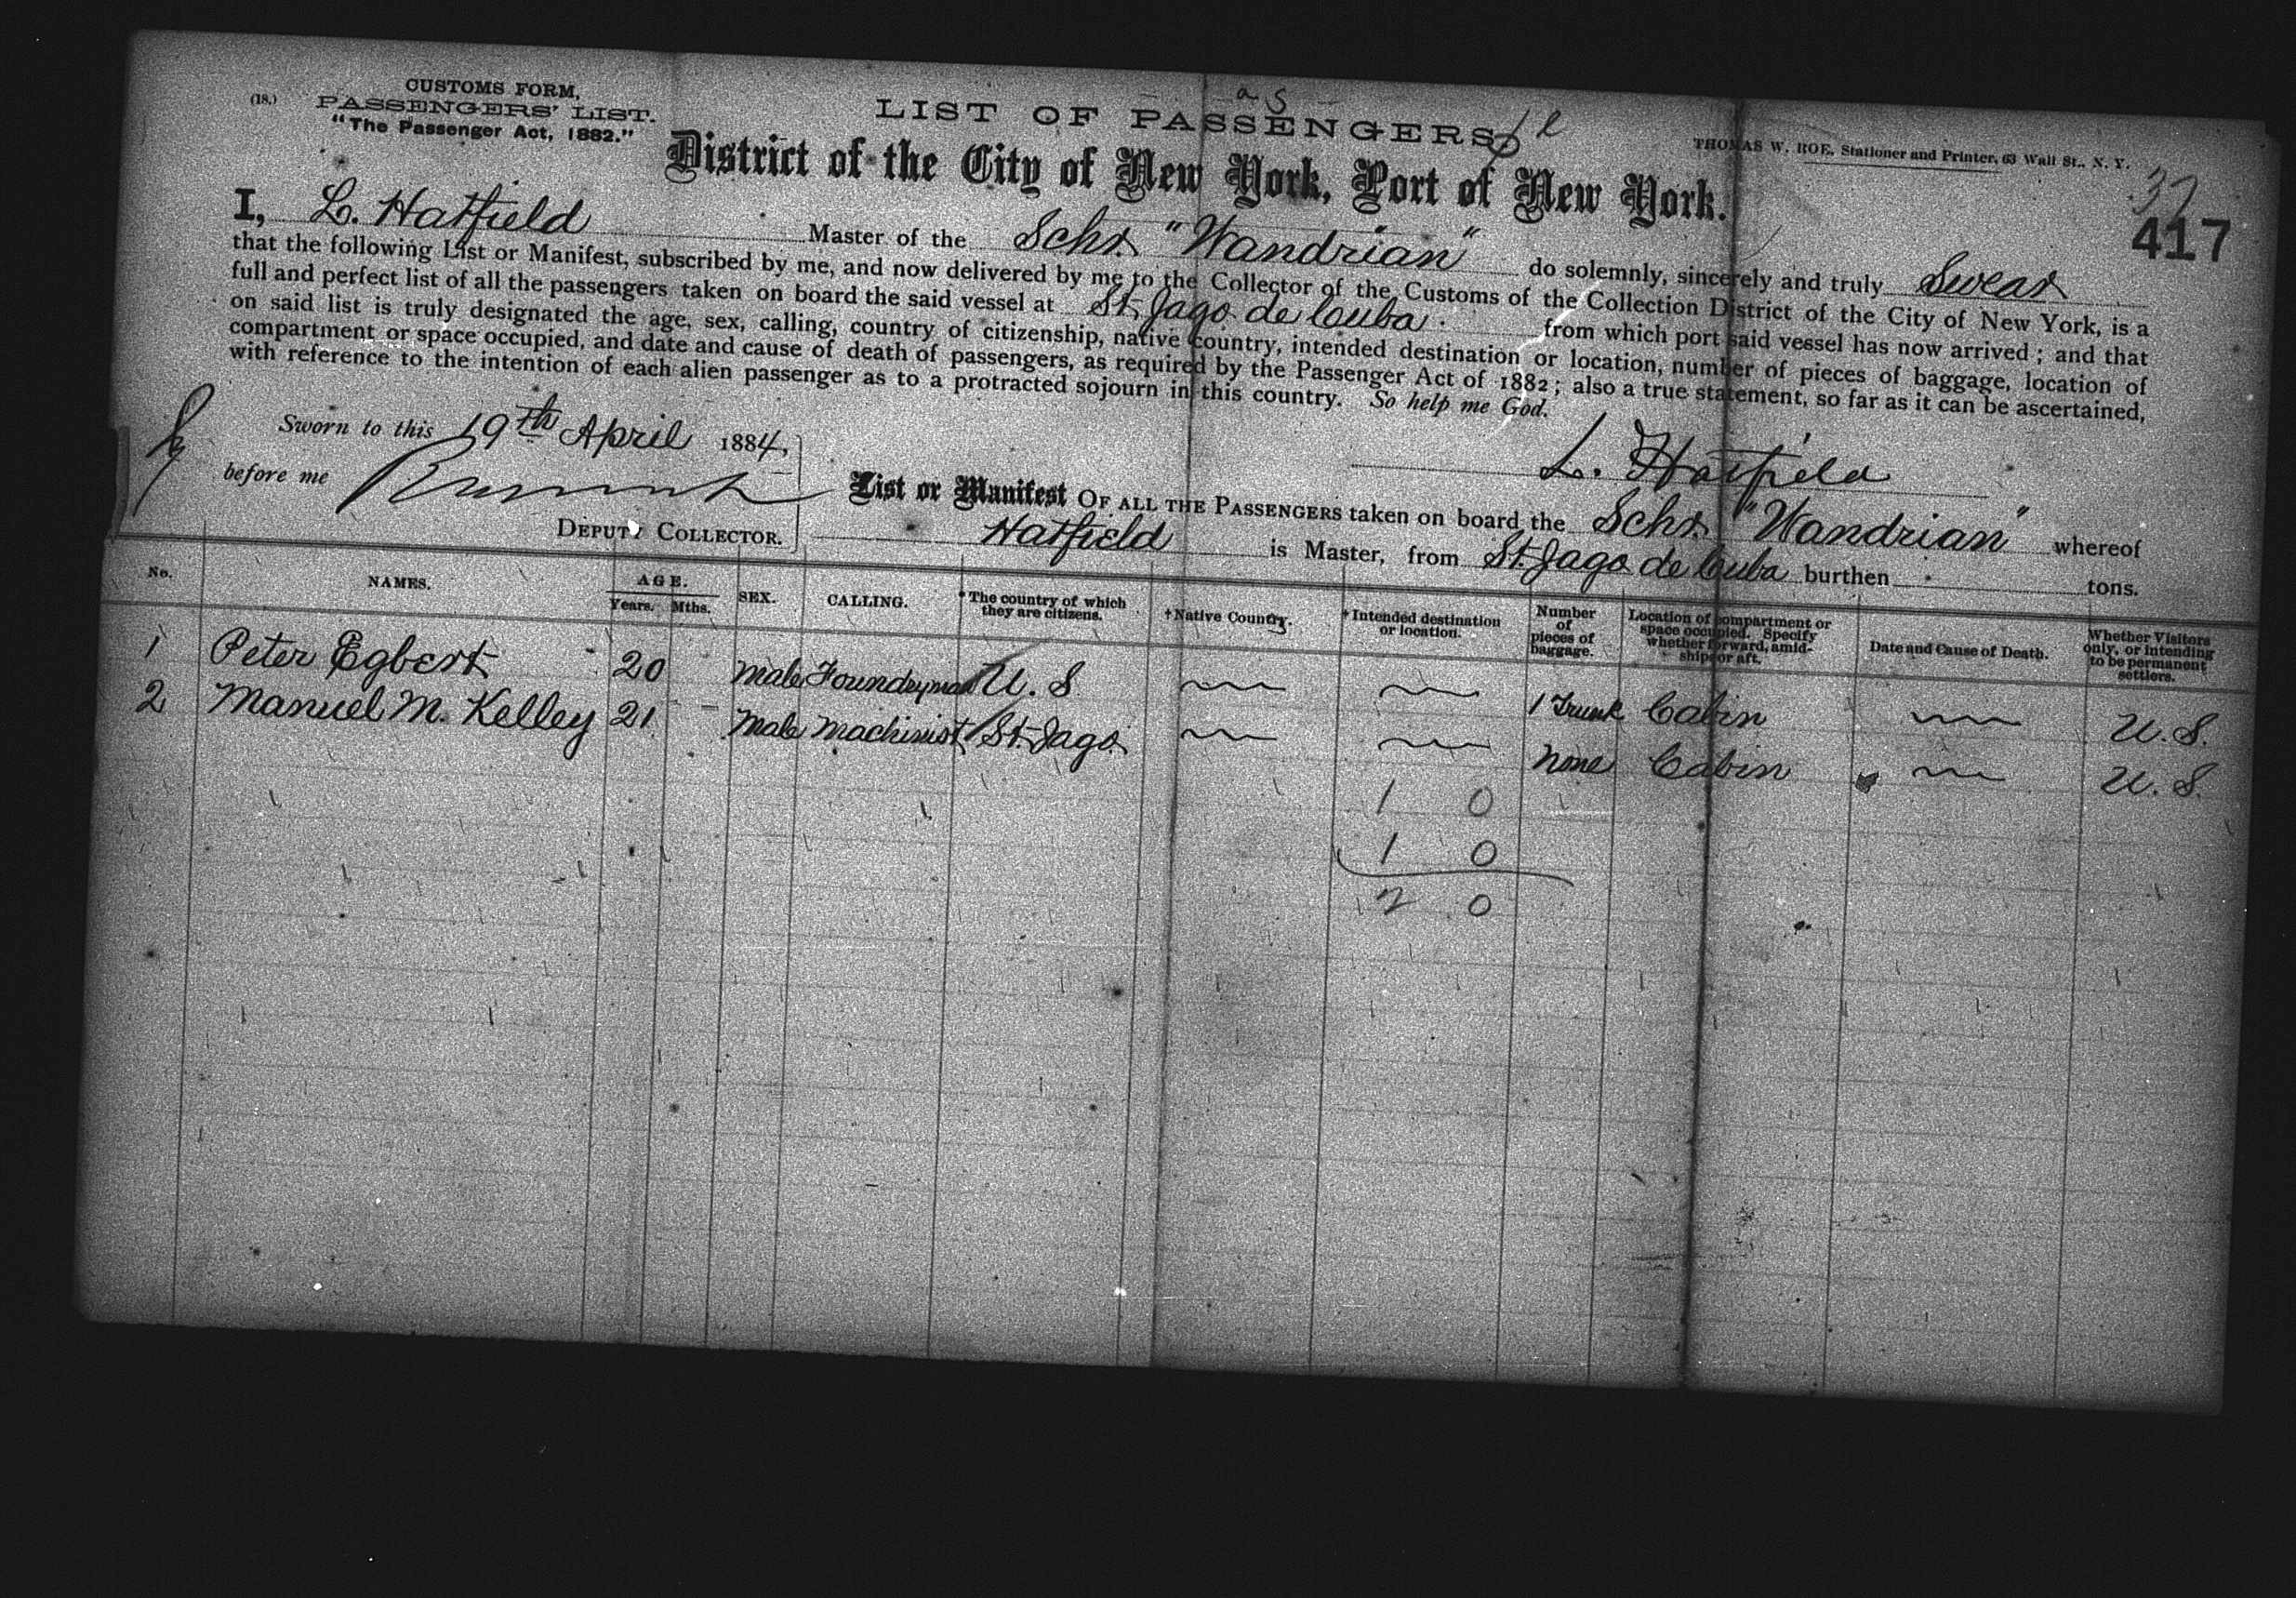 CUSTOMS FORM,
(18.) PASSENGERS' LIST.
"The Passenger Act, 1882."
a s
LIST OF PASSENGERS,
THOMAS W. ROE, Stationer and Printer, 63 Wall St., N. Y.
District of the City of New York, Port of New York.
37
417
I, L. Hatfield Master of the Schr. "Wandrian" do solemnly, sincerely and truly Swear
that the following List or Manifest, subscribed by me, and now delivered by me to the Collector of the Customs of the Collection District of the City of New York, is a
full and perfect list of all the passengers taken on board the said vessel at St. Jago de Cuba. from which port said vessel has now arrived; and that
on said list is truly designated the age, sex, calling, country of citizenship, native country, intended destination or location, number of pieces of baggage, location of
compartment or space occupied, and date and cause of death of passengers, as required by the Passenger Act of 1882; also a true statement, so far as it can be ascertained,
with reference to the intention of each alien passenger as to a protracted sojourn in this country. So help me God.
Sworn to this 19th April 1884,
L. Hatfield
before me
DEPUTY COLLECTOR.
List or Manifest OF ALL THE PASSENGERS taken on board the Schr. "Wandrian" whereof
Hatfield is Master, from St. Jago de Cuba burthen tons.
No. NAMES. AGE. Years. Mths. SEX. CALLING. * The country of which they are citizens. †Native Country. †Intended destination or location. Number of pieces of baggage. Location of compartment or space occupied. Specify whether forward, amidships or aft. Date and Cause of Death. Whether Visitors only, or intending to be permanent settlers.
1 Peter Egbert 20 male Foundryman U. S 1 Trunk Cabin U. S.
2 Manuel M. Kelley 21 male machinist St. Jago none Cabin U. S.
1 0
1 0
2 0